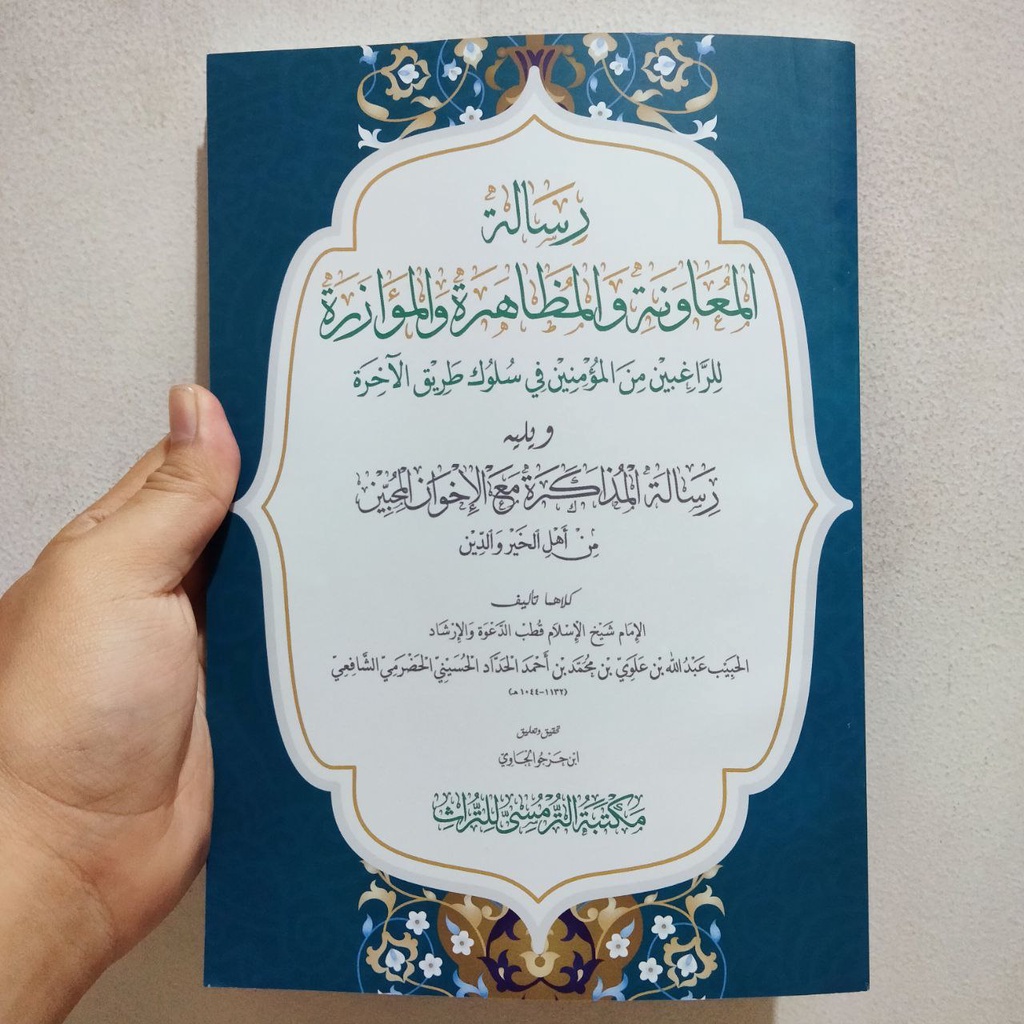 رسالة
المُعَاوَنَةِ وَالمُظَاهَرَةِ وَالمُؤَازَرَةِ
لِلرَّاغِبِيْنَ مِنَ المُؤْمِنِيْنَ فِي سُلُوْكِ طَرِيْقِ الآخِرَةِ
ويليه
رِسَالَةُ المُذَاكَرَةِ مَعَ الإِخْوَانِ المُحِبِّيْنَ
مِنْ أَهْلِ الخَيْرِ وَالدِّيْنِ
كلاهما تأليف
الإِمَام شَيْخ الإِسْلَام قُطْب الدَّعْوَة وَالإِرْشَاد
الحَبِيْب عَبْدُ الله بن عَلَوِيّ بن مُحَمَّد بن أَحْمَد الحَدَّاد الحُسَيْنِيّ الحَضْرَمِيّ الشَّافِعِيّ
(١٠٤٤-١١٣٢ هـ)
تحقيق وتعليق
ابن حَرْجُو الجَاوِيّ
مَكْتَبَةُ التُّرْمُسِيّ لِلتُّرَاثِ